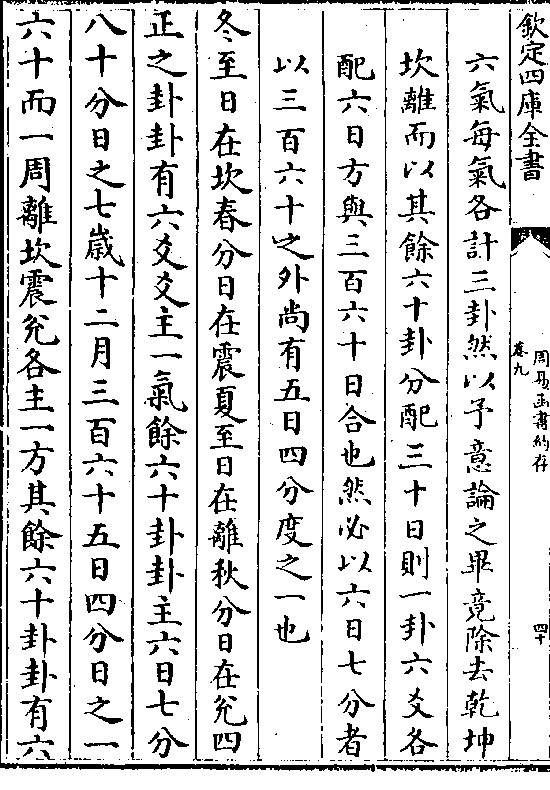 欽定四庫全書
周易函書約存
卷九
四十
六氣每氣各計三卦然以予意論之畢竟除去乾坤
坎離而以其餘六十卦分配三十日則一卦六爻各
配六日方與三百六十日合也然必以六日七分者
以三百六十之外尚有五日四分度之一也
冬至日在坎春分日在震夏至日在離秋分日在兊四
正之卦卦有六爻爻主一氣餘六十卦卦主六日七分
八十分日之七歳十二月三百六十五日四分日之一
六十而一周離坎震兊各主一方其餘六十卦卦有六